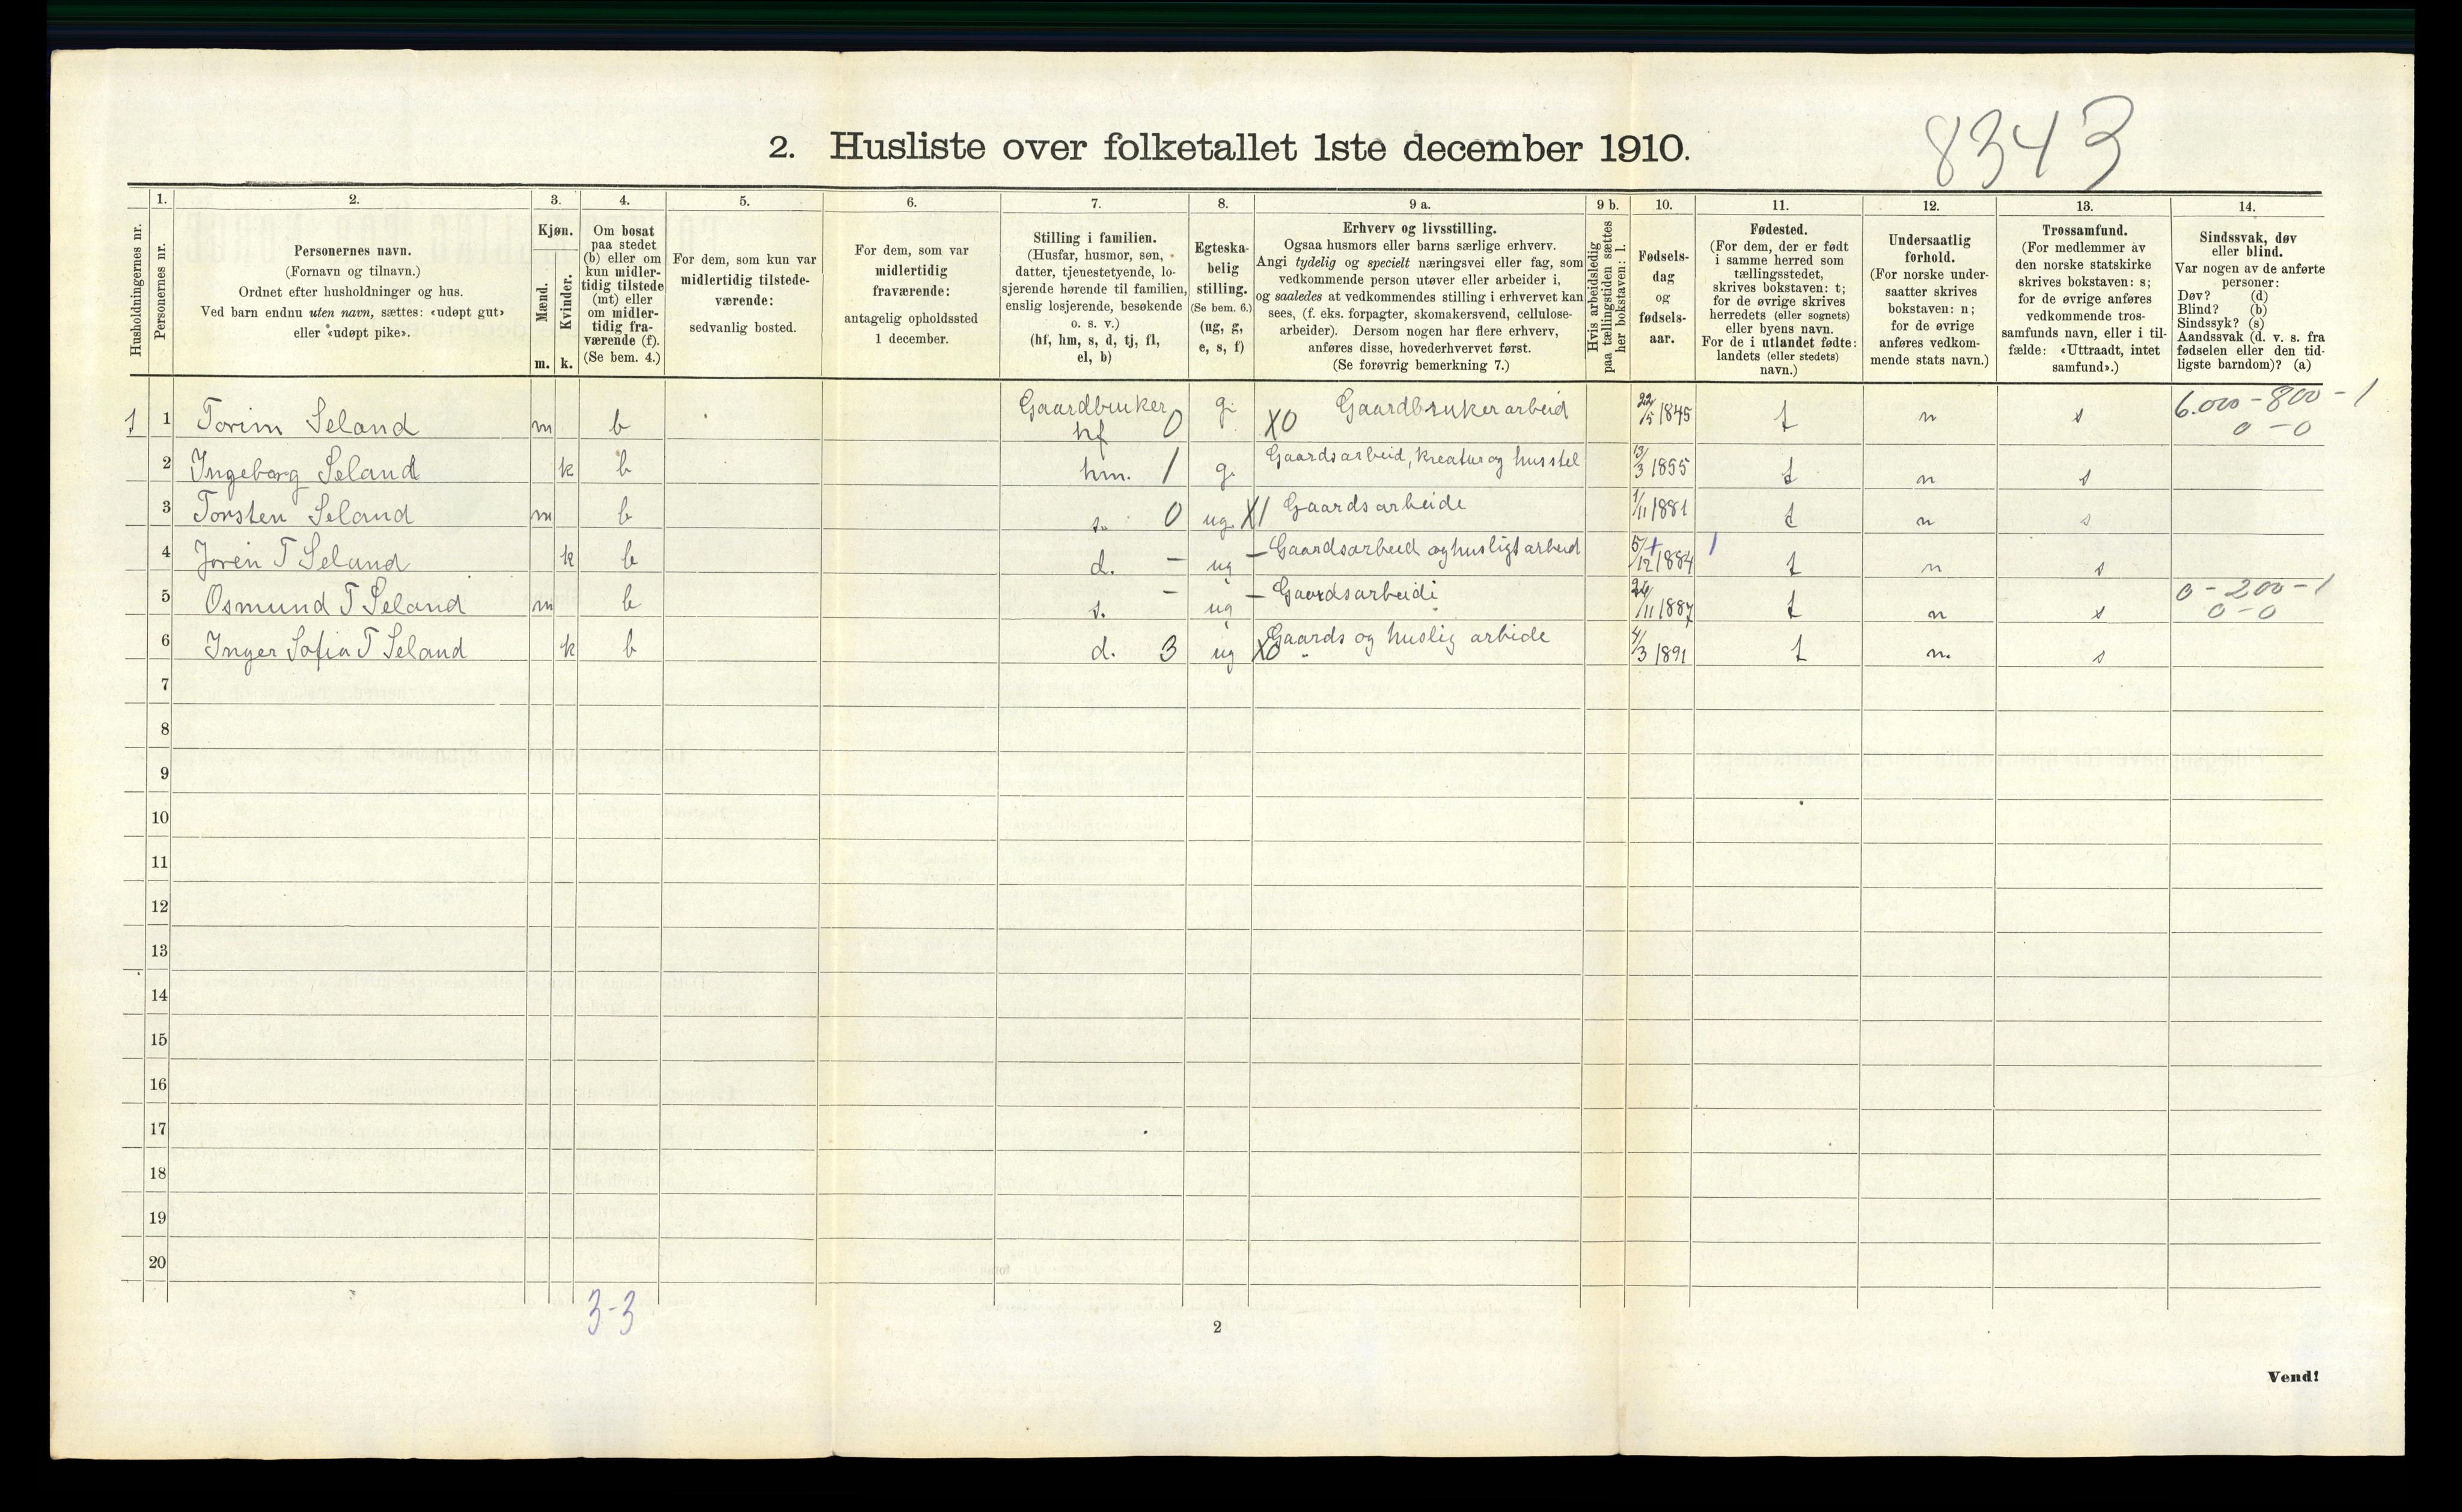 8343
2. Husliste over folketallet 1ste december 1910.
1. 2. 3. 4. 5. 6. 7. 8. 9 a. 9 b. 10. 11. 12. 13. 14.
Husholdningernes nr.
Personernes nr.
Personernes navn.
(Fornavn og tilnavn.)
Ordnet efter husholdninger og hus.
Ved barn endnu uten navn, sættes: «udøpt gut»
eller «udøpt pike».
Kjøn.
Mænd.
Kvinder.
m. k.
Om bosat
paa stedet
(b) eller om
kun midler-
tidig tilstede
(mt) eller
om midler-
tidig fra-
værende (f).
(Se bem. 4.)
For dem, som kun var
midlertidig tilstede-
værende:
sedvanlig bosted.
For dem, som var
midlertidig
fraværende:
antagelig opholdssted
1 december.
Stilling i familien.
(Husfar, husmor, søn,
datter, tjenestetyende, lo-
sjerende hørende til familien,
enslig losjerende, besøkende
o. s. v.)
(hf, hm, s, d, tj, fl,
el, b)
Egteska-
belig
stilling.
(Se bem. 6.)
(ug, g,
e, s, f)
Erhverv og livsstilling.
Ogsaa husmors eller barns særlige erhverv.
Angi tydelig og specielt næringsvei eller fag, som
vedkommende person utøver eller arbeider i,
og saaledes at vedkommendes stilling i erhvervet kan
sees, (f. eks. forpagter, skomakersvend, cellulose-
arbeider). Dersom nogen har flere erhverv,
anføres disse, hovederhvervet først.
(Se forøvrig bemerkning 7.)
Hvis arbeidsledig
paa tællingstiden sættes
her bokstaven: l.
Fødsels-
dag
og
fødsels-
aar.
Fødested.
(For dem, der er født
i samme herred som
tællingsstedet,
skrives bokstaven: t;
for de øvrige skrives
herredets (eller sognets)
eller byens navn.
For de i utlandet fødte:
landets (eller stedets)
navn.)
Undersaatlig
forhold.
(For norske under-
saatter skrives
bokstaven: n;
for de øvrige
anføres vedkom-
mende stats navn.)
Trossamfund.
(For medlemmer av
den norske statskirke
skrives bokstaven: s;
for de øvrige anføres
vedkommende tros-
samfunds navn, eller i til-
fælde: «Uttraadt, intet
samfund».)
Sindssvak, døv
eller blind.
Var nogen av de anførte
personer:
Døv? (d)
Blind? (b)
Sindssyk? (s)
Aandssvak (d. v. s. fra
fødselen eller den tid-
ligste barndom)? (a)
1 1 Torim Seland m b Gaardbruker hf 0 g. X0 Gaardbruker arbeid 22/5 1845 t n s 6.000-800-1 0-0
2 Ingeborg Seland k b hm. 1 g. Gaardsarbeid, kreatur og husstel 13/3 1855 t n s
3 Torsten Seland m b s. 0 ug X1 Gaards arbeide 1/11 1881 t n s
4 Joren T Seland k b d. - ug - Gaardsarbeid og husligt arbeid 5/12 1884 t n s
5 Osmund T Seland m b s. - ug - Gaardsarbeidi 26/11 1887 t n s 0-200-1 0-0
6 Inger Sofia T Seland k b d. 3 ug X0 Gaards og huslig arbide 4/3 1891 t n. s
7
8
9
10
11
12
13
14
15
16
17
18
19
20
3-3
2
Vend!